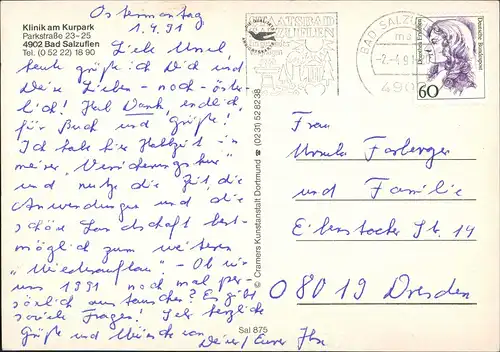 Klinik am Kurpark
Parkstraße 23-25
4902 Bad Salzuflen
Tel. (0 52 22) 18 90
Ostermontag
1.4.91
Liebe Ursel
heute grüße ich Dich und
Deine Lieben - noch - öster-
lich! Hab Dank, endlich,
für Buch und Grüße!
Ich habe hier Halbzeit in
meiner "Versicherungskur"
und nutze die Zeit, die
Anwendungen und die
schöne Landschaft best-
möglich zum weiteren
"Wiederaufbau" - Ob wir
uns 1991 noch mal per-
sönlich austauschen? Es gibt
soviele Fragen! Sehr herzliche
Grüße und Wünsche von
Deiner/Eurer
© Cramers Kunstanstalt Dortmund ☎ (02 31) 52 82 38
Sal 875
STAATSBAD
SALZUFLEN
BAD SALZUFLEN
-2.-4.91
490
Deutsche Bundespost
60
Frau
Ursula Forberger
und Familie
Eibenstocker Str. 14
O 8019 Dresden